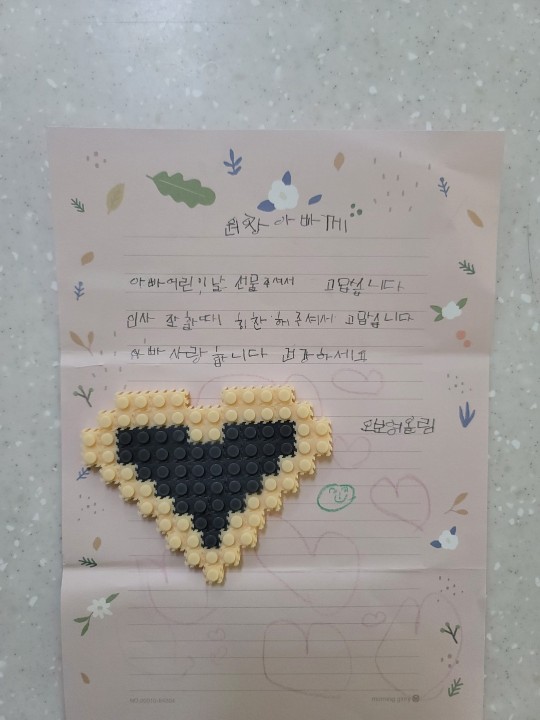 원장아빠께
아빠 어린이날 선물 주셔서 고맙습니다
인사 잘 할때 칭찬해 주셔서 고맙습니다
아빠 사랑합니다 건강하세요
올림